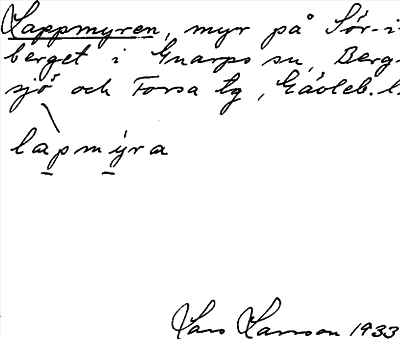 Lappmyren, myr på Sör-
berget i Gnarps sn, Berg-
sjö och Forsa tg, Gävleb. l.
làpmýra
Lars Larsson 1933